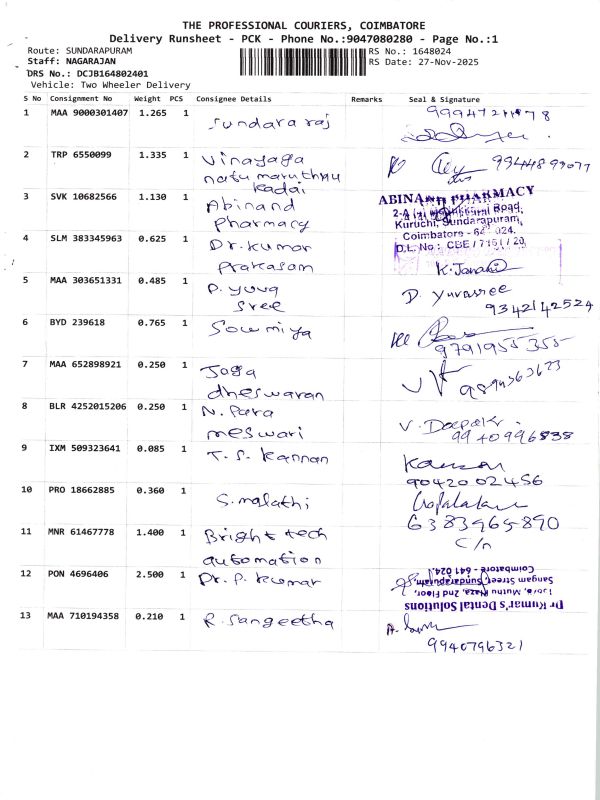 THE PROFESSIONAL COURIERS, COIMBATORE
Delivery Runsheet - PCK - Phone No.:9047080280 - Page No.:1
Route: SUNDARAPURAM
RS No.: 1648024
Staff: NAGARAJAN
RS Date: 27-Nov-2025
DRS No.: DCJB164802401
Vehicle: Two Wheeler Delivery
S No Consignment No Weight PCS Consignee Details Remarks Seal & Signature
1 MAA 9000301407 1.265 1 Sundara raj
2 TRP 6550099 1.335 1 Vinayaga
natu maruthu
kadai
3 SVK 10682566 1.130 1 Abinand
pharmacy
ABINAND PHARMACY
Kuruchi, Sundarapuram,
Coimbatore - 641 024.
D.L. No.: CBE / 7151 / 20
4 SLM 383345963 0.625 1 Dr. kumar
prakasam
K. Janaki
5 MAA 303651331 0.485 1 D. yuva
sree
D. yuvasree
9342142524
6 BYD 239618 0.765 1 Sowmiya
9791955355
7 MAA 652898921 0.250 1 Joga
dheswaran
8 BLR 4252015206 0.250 1 N. Para
meswari
V. Deepak
9940996838
9 IXM 509323641 0.085 1 T. S. kannan
Kannan
9042002456
10 PRO 18662885 0.360 1 S. malathi
6383965890
C/n
11 MNR 61467778 1.400 1 Bright tech
automation
12 PON 4696406 2.500 1 Dr. P. kumar
Dr Kumar's Dental Solutions
Muthu Plaza, 2nd Floor,
Sangam Street, Sundarapuram,
Coimbatore - 641 024.
13 MAA 710194358 0.210 1 R. Sangeetha
9940796321